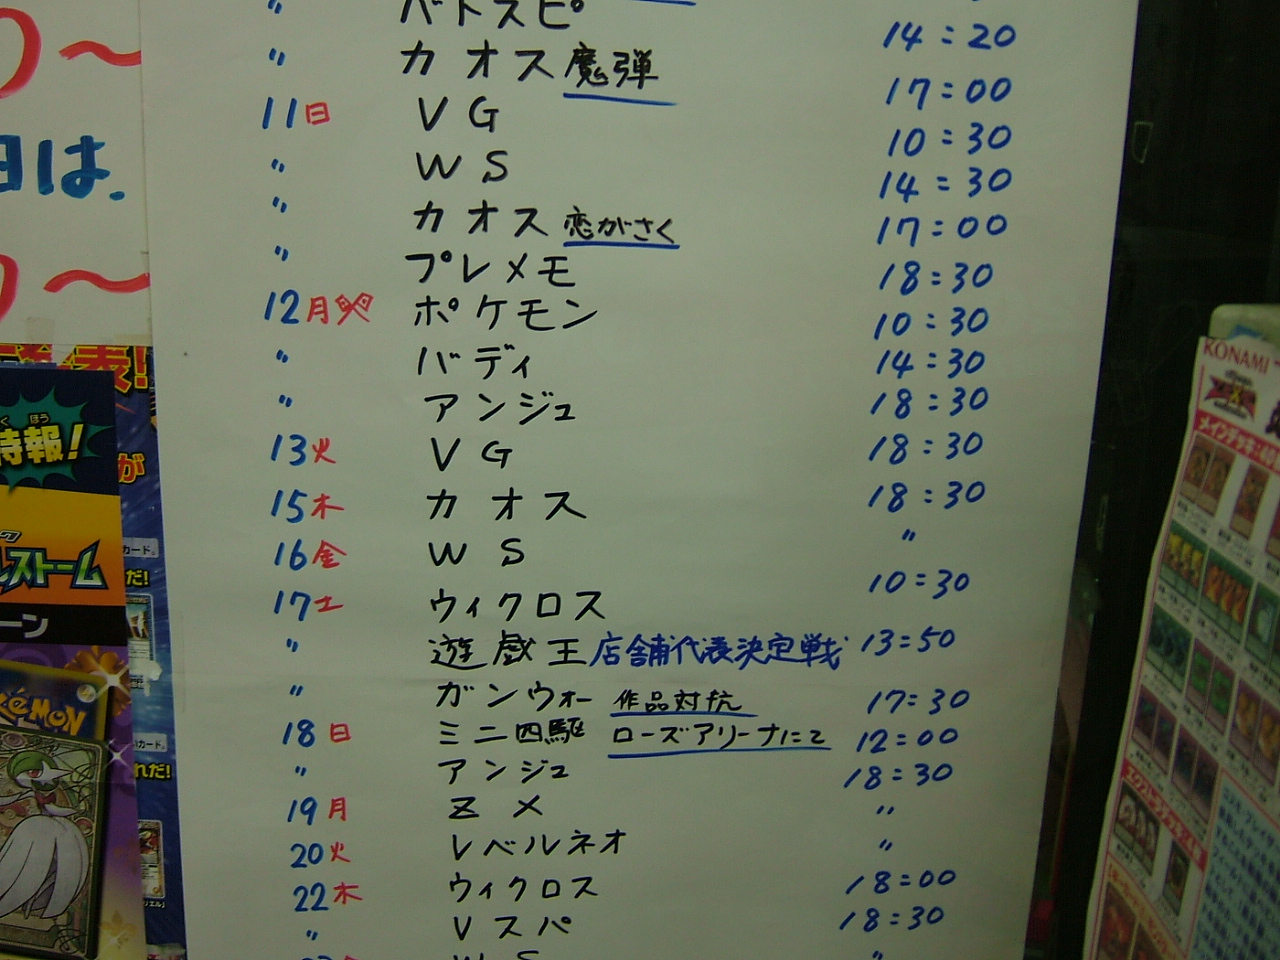 〃 バトスピ 14:20
〃 カオス 魔弾 17:00
11日 VG 10:30
〃 WS 14:30
〃 カオス 恋がさく 17:00
〃 プレメモ 18:30
12月祝 ポケモン 10:30
〃 バディ 14:30
〃 アンジュ 18:30
13火 VG 18:30
15木 カオス 18:30
16金 WS 〃
17土 ウィクロス 10:30
〃 遊戯王 店舗代表決定戦 13:50
〃 ガンウォー 作品対抗 17:30
18日 ミニ四駆 ローズアリーナにて 12:00
〃 アンジュ 18:30
19月 ZX 〃
20火 レベルネオ 〃
22木 ウィクロス 18:00
〃 Vスパ 18:30
WS 〃
日は、
表!
ほう
特報!
が
ストーム
カード。
だ!
ーン
POKÉMON
れだ!
KONAMI
メインデッキ